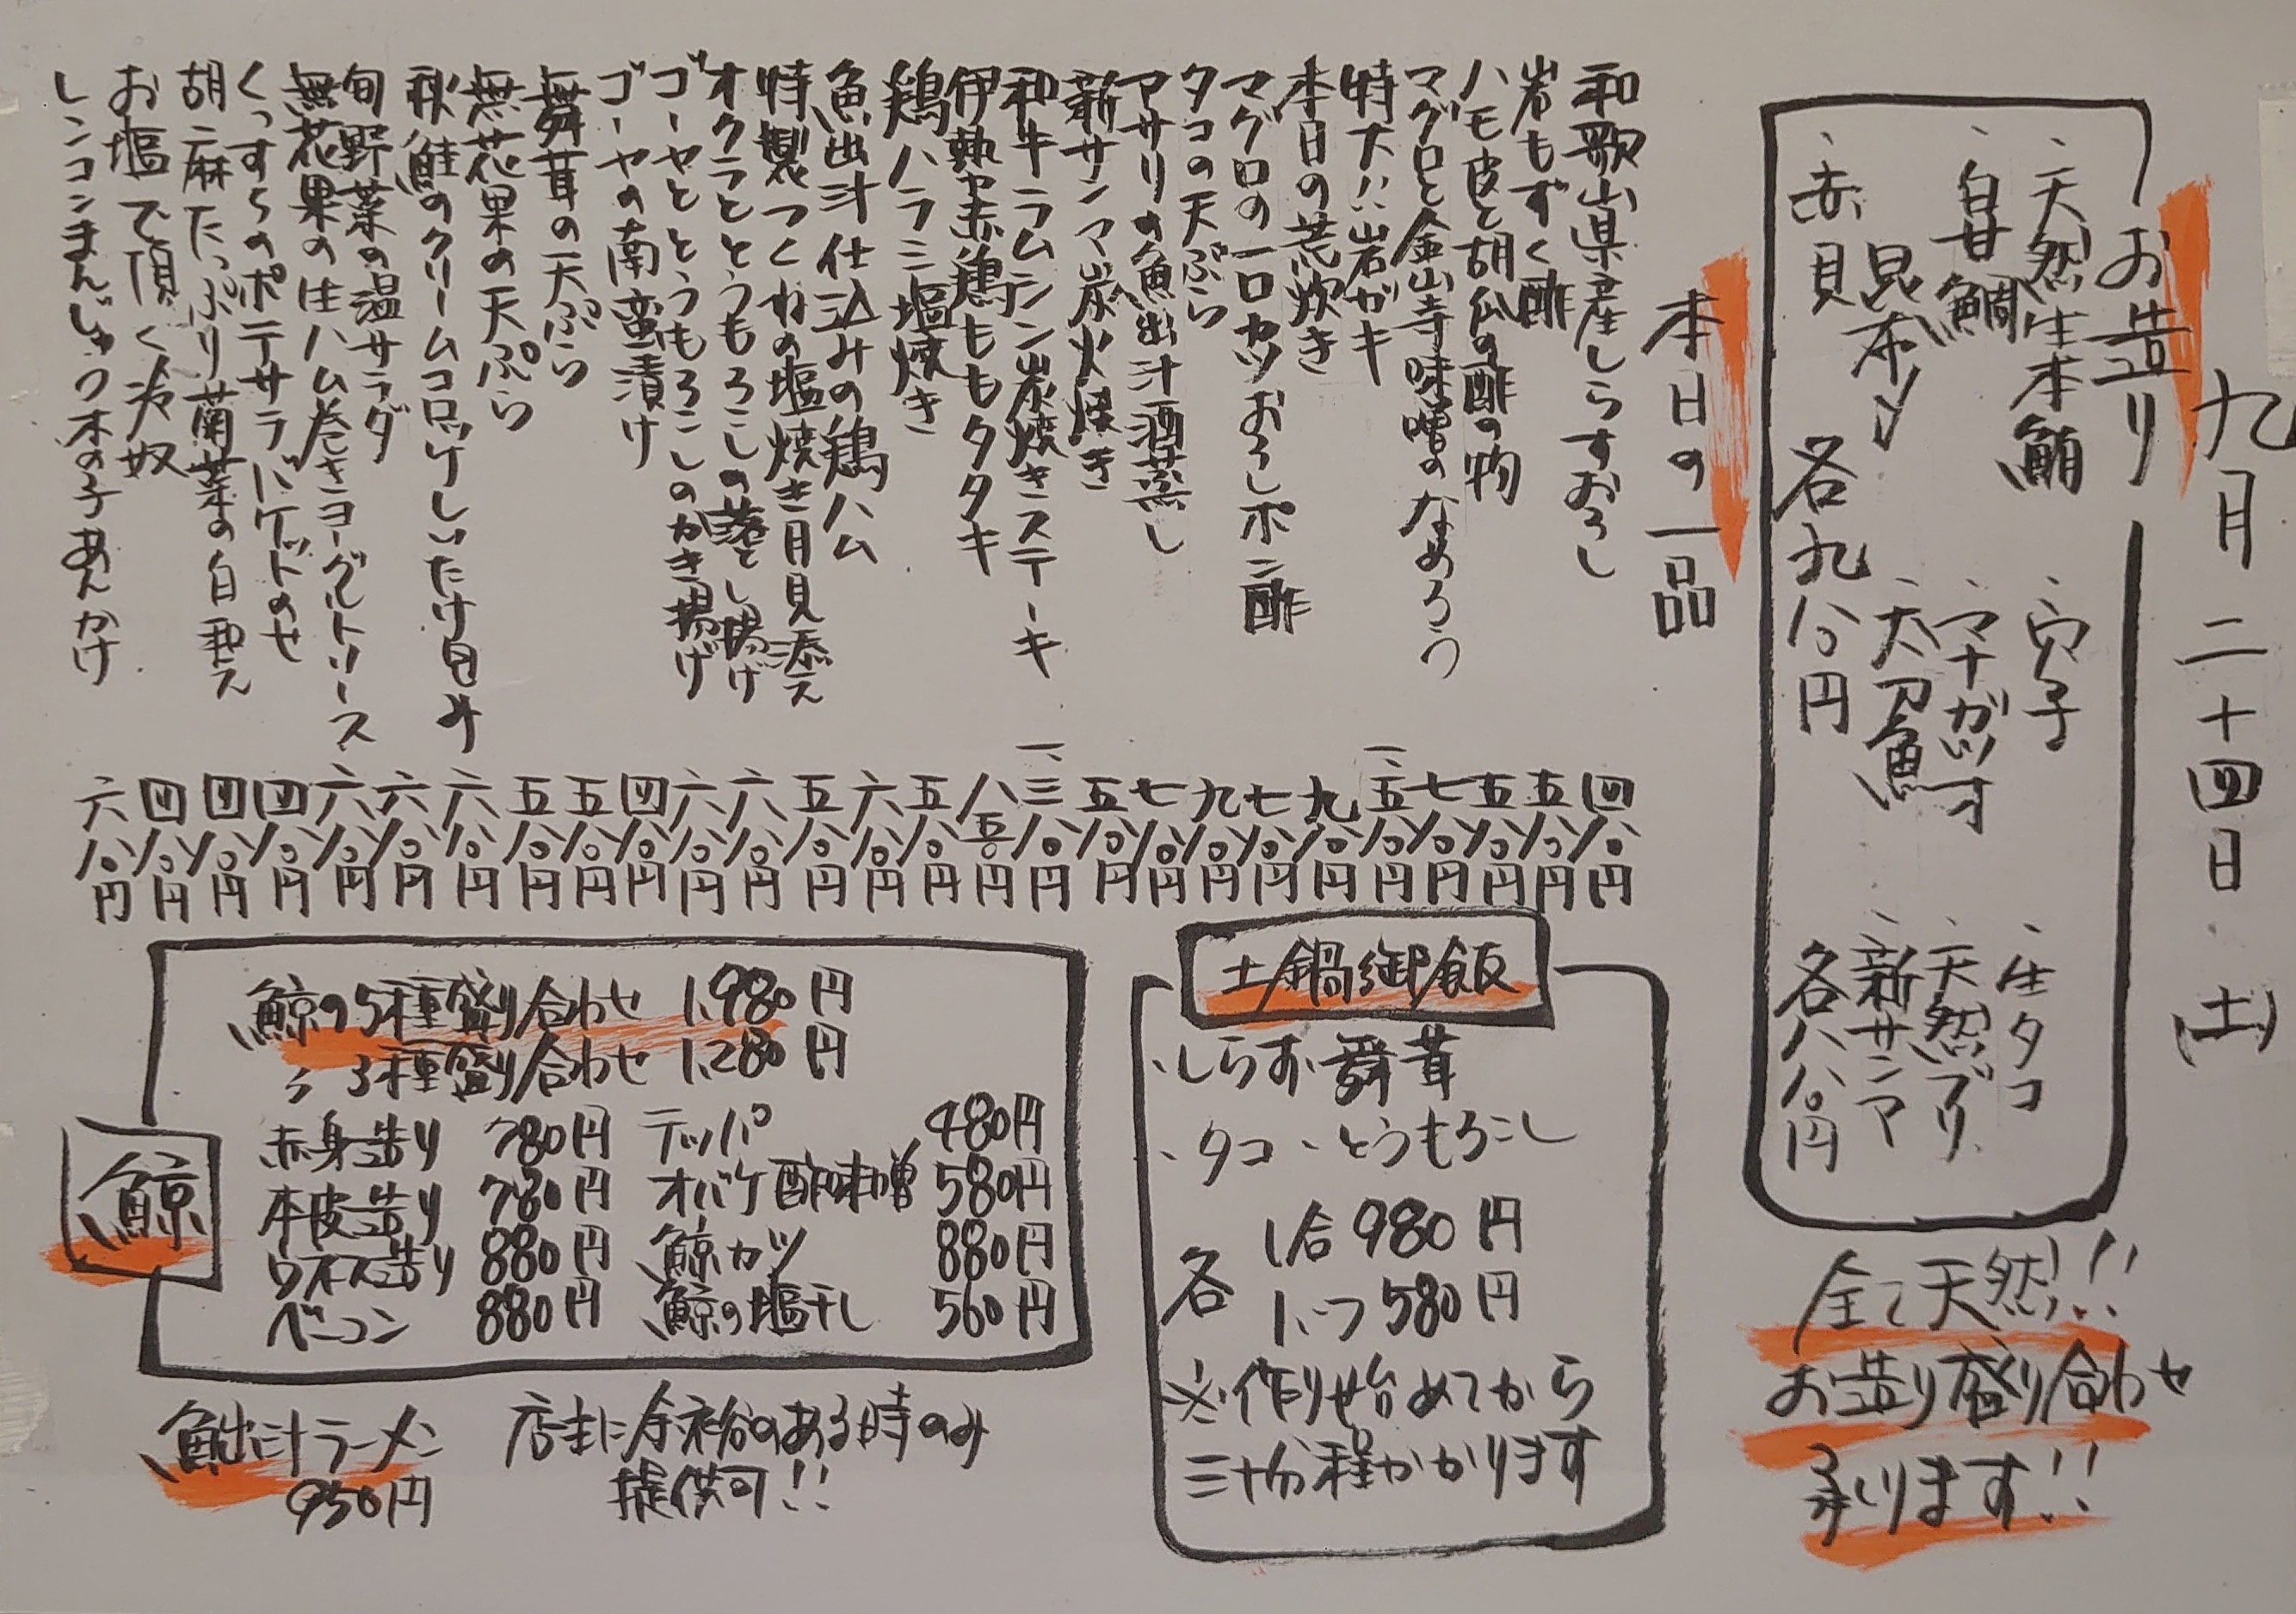 九月二十四日(土)
お造り
・天然生本鮪
・白甘鯛昆布〆
・赤貝
各九八〇円
・穴子
・マナガツオ
・太刀魚
・生タコ
・天然ブリ
・新サンマ
各八八〇円
全て天然!!
お造り盛り合わせ
承ります!!
本日の一品
和歌山県産しらすおろし 四八〇円
岩もずく酢 五八〇円
ハモ皮と胡瓜の酢の物 五八〇円
マグロと金山寺味噌のなめろう 七八〇円
特大!!岩ガキ 一、五八〇円
本日の荒炊き 九八〇円
マグロの一口カツおろしポン酢 七八〇円
タコの天ぷら 九八〇円
アサリの魚出汁酒蒸し 七八〇円
新サンマ炭火焼き 五八〇円
和牛ラムシン炭焼きステーキ 一、三八〇円
伊勢赤鶏ももタタキ 八五〇円
鶏ハラミ塩焼き 五八〇円
魚出汁仕込みの鶏ハム 六八〇円
特製つくねの塩焼き月見添え 五八〇円
オクラととうもろこしの落とし揚げ 六八〇円
ゴーヤととうもろこしのかき揚げ 六八〇円
ゴーヤの南蛮漬け 四八〇円
舞茸の天ぷら 五八〇円
無花果の天ぷら 五八〇円
秋鮭のクリームコロッケしいたけ包み 六八〇円
旬野菜の温サラダ 六八〇円
無花果の生ハム巻きヨーグルトソース 六八〇円
くっすらのポテサラバゲットのせ 四八〇円
胡麻たっぷり菊菜の白和え 四八〇円
お塩で頂く冷奴 四八〇円
レンコンまんじゅう木の子あんかけ 六八〇円
土鍋御飯
・しらす舞茸
・タコ・とうもろこし
各 1合 980円
1/2つ 580円
※作り始めてから
三十分程かかります
鯨
鯨の5種盛り合わせ 1,980円
〃 3種盛り合わせ 1,280円
赤身造り 780円 テッパ 480円
本皮造り 780円 オバケ酢味噌 580円
ウネス造り 880円 鯨カツ 880円
ベーコン 880円 鯨の塩干し 560円
魚出汁ラーメン
950円
店主に余裕のある時のみ
提供可!!